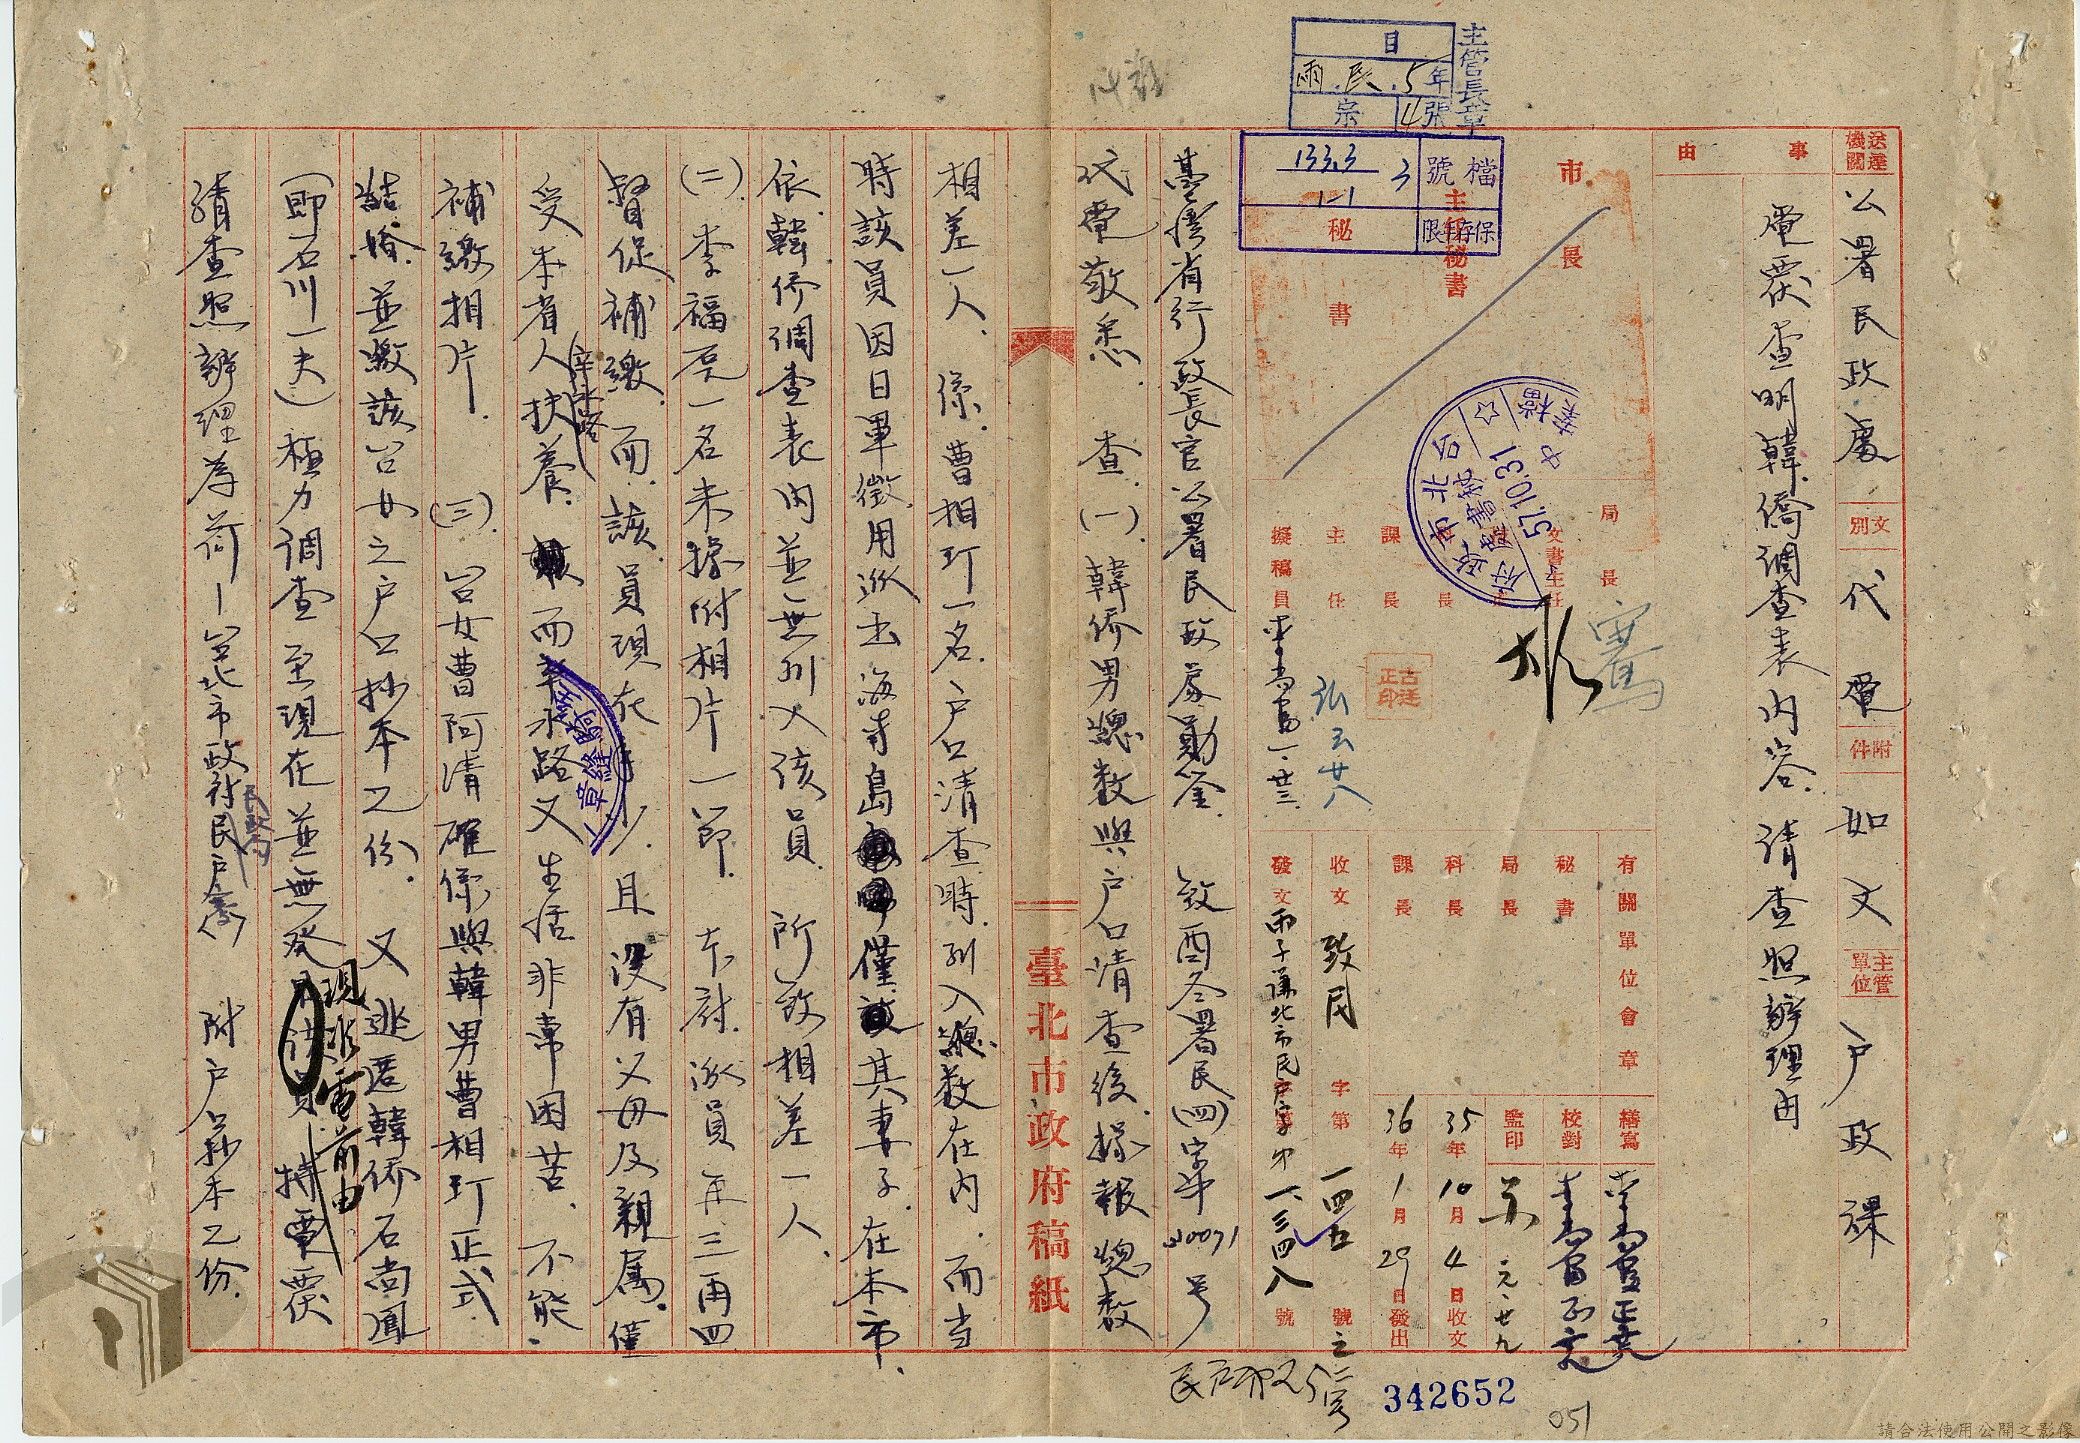 主管長章
日
年5.民.兩
張4
宗
檔號
133.3
1-1
3
保存年限
送達機關
公署民政處
文別
代電
附件
如文
主管單位
戶政課
事由
電覆查明韓僑調查表內容請查照辦理由
市長
主任秘書
秘書
局長
文書主任
課長
主任
擬稿員
有關單位會章
秘書
局長
科長
課長
繕寫
校對
監印
元、廿九
35年10月4日收文
36年1月29日發出
收文 致民 字第 一四五 號之二号
發文 字第 一、三四八 號
台北市政府秘書處
57.10.31
臺灣省行政長官公署民政處勛鑒 致酉冬署民(四)字第20071号
代電敬悉、查、(一)、韓僑男總數與戶口清查後、據報總數
臺北市政府稿紙
相差一人、係、曹相玎一名、戶口清查時、列入總數在內、而当
時該員因日軍徵用派去海南島僅其妻子、在本市、
依、韓僑調查表內並無列入該員、所致相差一人、
(二)、李福亮一名未據附相片一節、本府、派員再三再四
督促補繳、而、該員現在年少、且沒有父母及親属、僅
受本省人(辛永路)扶養、而辛永路又生活非常困苦、不能、
補繳相片、(三)、台女曹阿清確係與韓男曹相玎正式
結婚、並繳該台女之戶口抄本乙份、又逃匿韓僑石尚鳳
(即石川一夫)極力調查至現在並無發現 准電前由 特電覆
請查照辦理為荷 台北市政府民政局民戶 附戶口抄本乙份
騎縫章
342652
051
請合法使用公開之影像